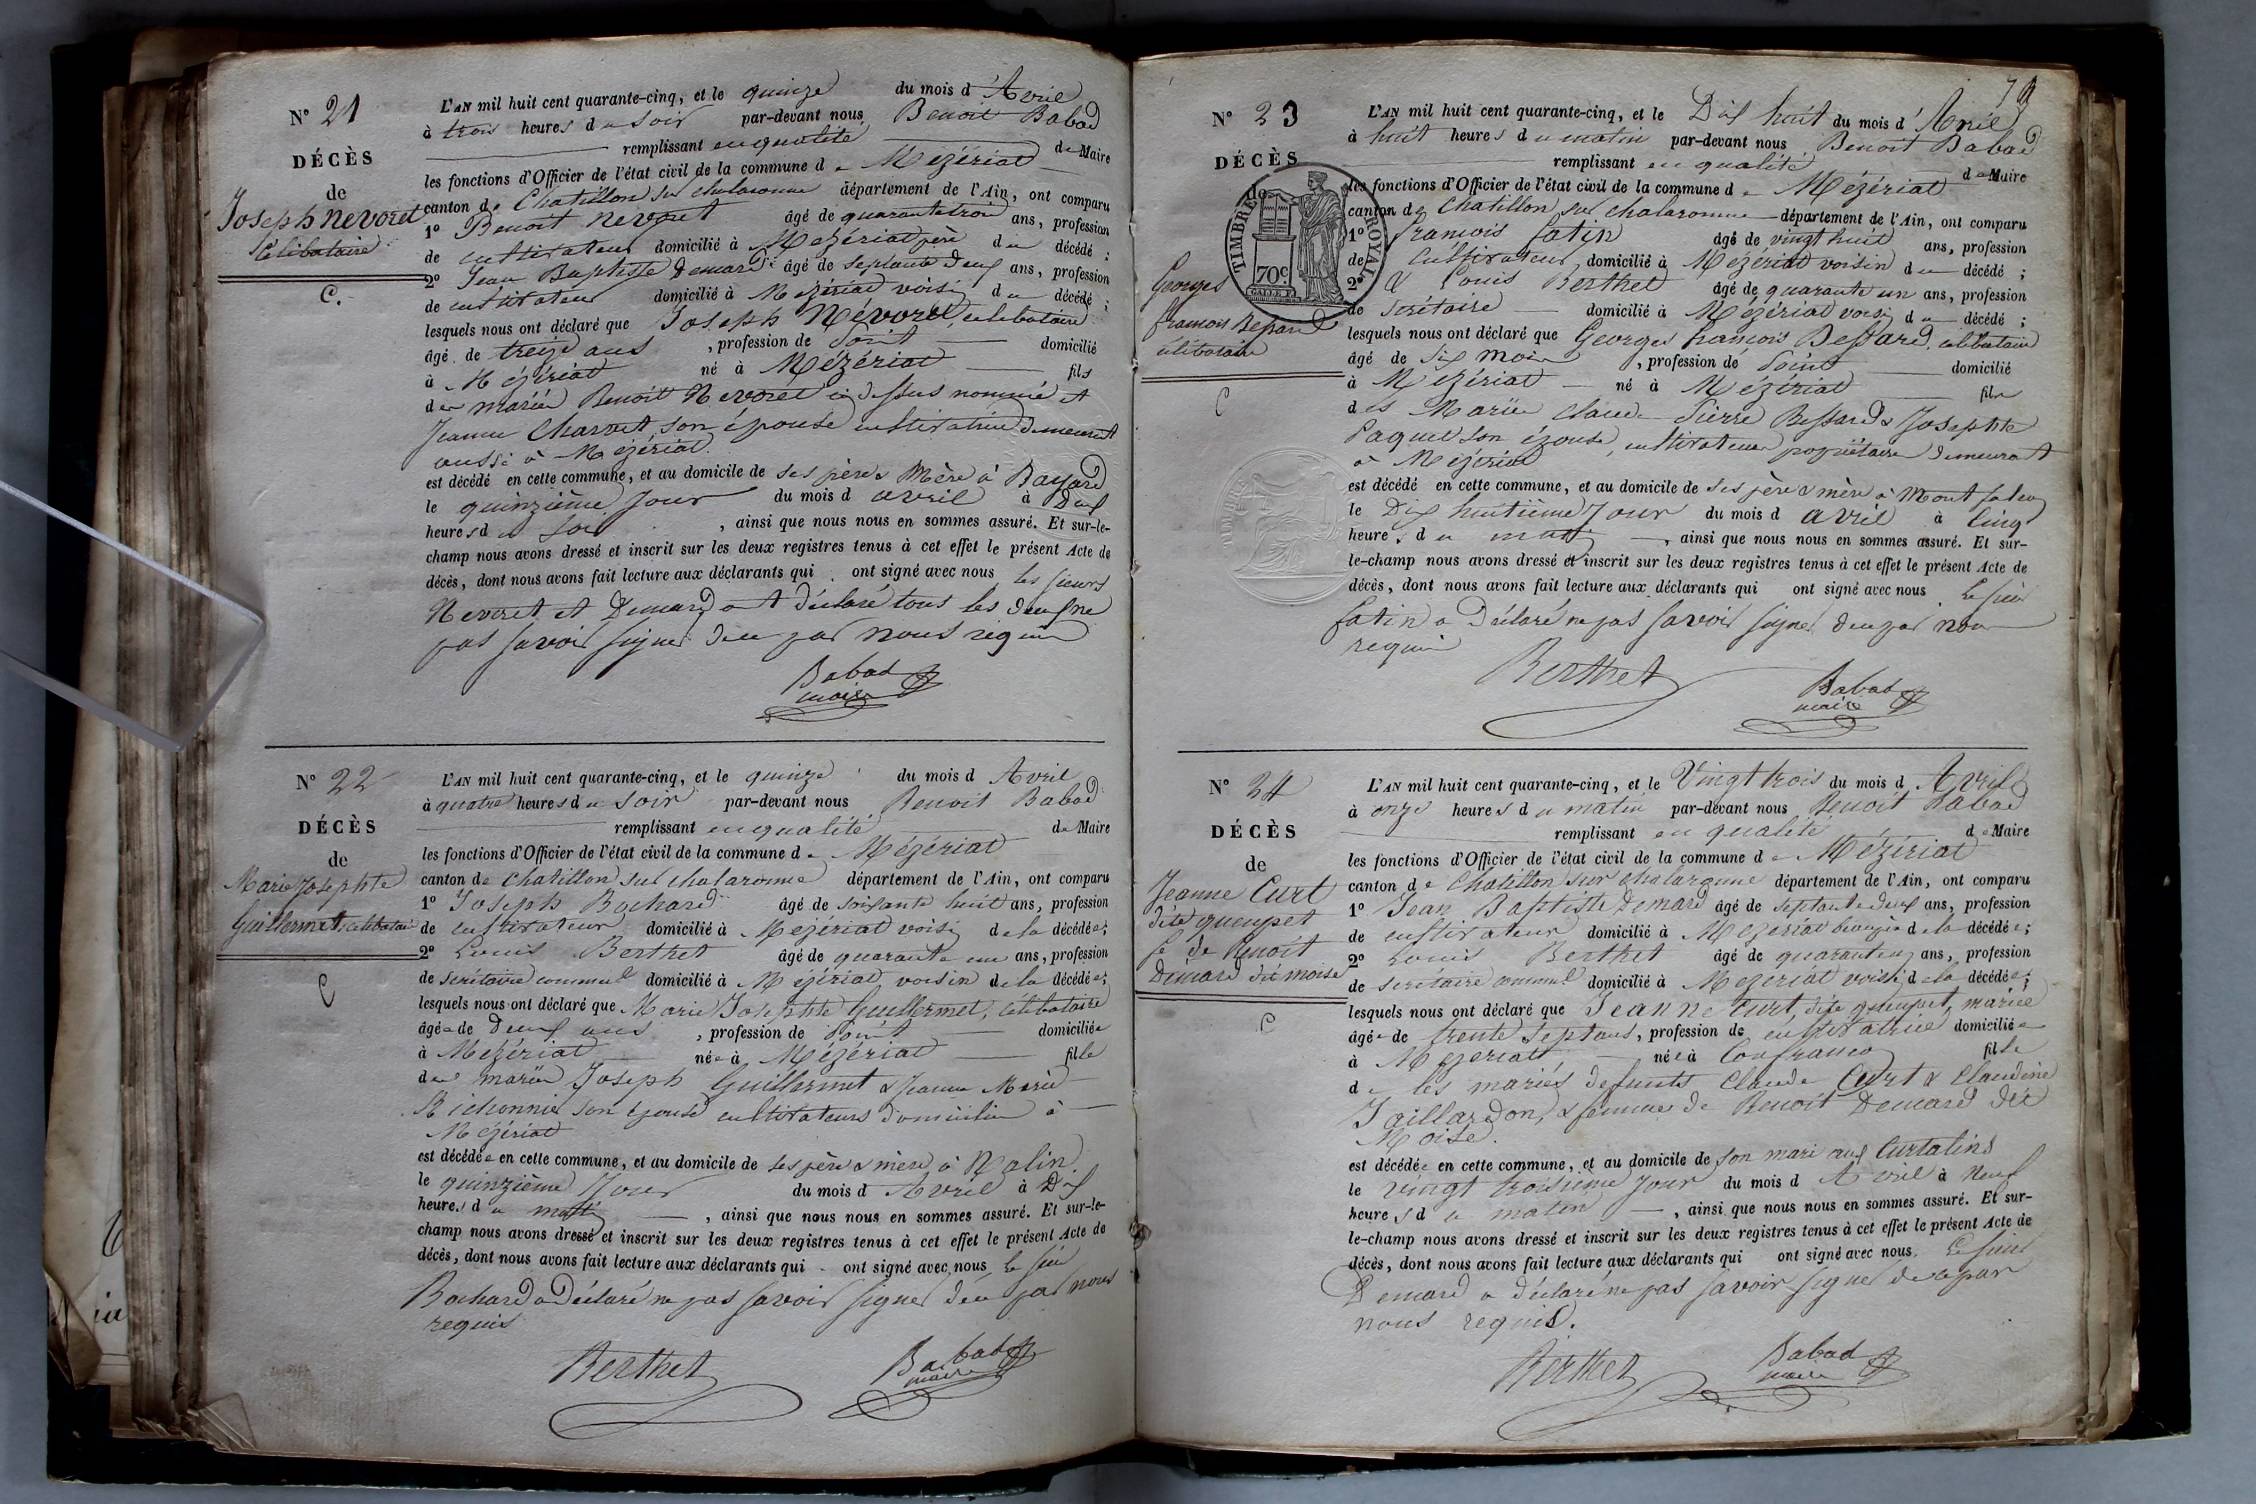 N° 21
DÉCÈS
de
Joseph Nevoret
Célibataire
C.
L'AN mil huit cent quarante-cinq, et le quinze du mois d'Avril
à trois heures du soir par-devant nous Benoit Babad
remplissant en qualité de Maire
les fonctions d'Officier de l'état civil de la commune de Mézériat
canton de Chatillon sur chalaronne département de l'Ain, ont comparu
1° Benoit Nevoret âgé de quarante trois ans, profession
de cultivateur domicilié à Mézériat père du décédé ;
2° Jean Baptiste Demard âgé de septante deux ans, profession
de cultivateur domicilié à Mézériat voisin du décédé ;
lesquels nous ont déclaré que Joseph Névoret, célibataire
âgé de treize ans , profession de Point domicilié
à Mézériat né à Mézériat fils
des mariés Benoit Nevoret ci dessus nommé et
Jeanne Charnet son épouse cultivatrice demeurant
aussi à Mézériat.
est décédé en cette commune, et au domicile de ses père & Mère à Bayard
le quinzième Jour du mois d avril à Deux
heures du soir , ainsi que nous nous en sommes assuré. Et sur-le-
champ nous avons dressé et inscrit sur les deux registres tenus à cet effet le présent Acte de
décès, dont nous avons fait lecture aux déclarants qui ont signé avec nous les sieurs
Nevoret et Demard ont déclaré tous les deux ne
pas savoir signer de ce par nous requis
Babad
maire
N° 22
DÉCÈS
de
Marie Josephte
Guillermet, célibataire
C
L'AN mil huit cent quarante-cinq, et le quinze du mois d Avril
à quatre heures du soir par-devant nous Benoit Babad
remplissant en qualité de Maire
les fonctions d'Officier de l'état civil de la commune de Mézériat
canton de Chatillon sur chalaronne département de l'Ain, ont comparu
1° Joseph Bochard âgé de soixante huit ans, profession
de cultivateur domicilié à Mézériat voisin de la décédée ;
2° Louis Berthet âgé de quarante un ans, profession
de secrétaire communal domicilié à Mézériat voisin de la décédée ;
lesquels nous ont déclaré que Marie Josephte Guillermet, célibataire
âgée de Deux ans , profession de Point domiciliée
à Mézériat née à Mézériat fille
des mariés Joseph Guillermet & Jeanne Marie
Michonnier son épouse cultivateurs domiciliés à
Mézériat
est décédée en cette commune, et au domicile de ses père & mère à Nalin
le quinzième Jour du mois d Avril à Dix
heures du matin , ainsi que nous nous en sommes assuré. Et sur-le-
champ nous avons dressé et inscrit sur les deux registres tenus à cet effet le présent Acte de
décès, dont nous avons fait lecture aux déclarants qui ont signé avec nous le sieur
Bochard a Déclaré ne pas savoir signer de ce par nous
requis
Berthet
Babad
maire
N° 23
DÉCÈS
de
TIMBRE ROYAL
70c
Georges
francois Bessard
célibataire
C
L'AN mil huit cent quarante-cinq, et le Dix huit du mois d'Avril
à huit heures du matin par-devant nous Benoit Babad
remplissant en qualité de Maire
les fonctions d'Officier de l'état civil de la commune de Mézériat
canton de Chatillon sur chalaronne département de l'Ain, ont comparu
1° francois fatin âgé de vingt huit ans, profession
de Cultivateur domicilié à Mézériat voisin du décédé ;
2° & Louis Berthet âgé de quarante un ans, profession
de secrétaire domicilié à Mézériat voisin du décédé ;
lesquels nous ont déclaré que Georges francois Bessard, célibataire
âgé de Six mois , profession de Point domicilié
à Mézériat né à Mézériat fils
des Mariés Claude Pierre Bessard & Josephte
Paquet son épouse, cultivateurs propriétaires demeurant
à Mézériat
est décédé en cette commune, et au domicile de ses père & mère à
le Dix huitième Jour du mois d avril à Cinq
heures du matin , ainsi que nous nous en sommes assuré. Et sur-
le-champ nous avons dressé et inscrit sur les deux registres tenus à cet effet le présent Acte de
décès, dont nous avons fait lecture aux déclarants qui ont signé avec nous le sieur
fatin a Déclaré ne pas savoir signer de ce par nous
requis
Berthet
Babad
maire
N° 24
DÉCÈS
de
Jeanne Curt
dite queupet
fe de Benoit
Demard dit moise
C
L'AN mil huit cent quarante-cinq, et le Vingt trois du mois d Avril
à onze heures du matin par-devant nous Benoit Babad
remplissant en qualité de Maire
les fonctions d'Officier de l'état civil de la commune de Mézériat
canton de Chatillon sur chalaronne département de l'Ain, ont comparu
1° Jean Baptiste Demard âgé de septante deux ans, profession
de cultivateur domicilié à Mézériat de la décédée ;
2° Louis Berthet âgé de quarante un ans, profession
de secrétaire communal domicilié à Mézériat voisin de la décédée ;
lesquels nous ont déclaré que Jeanne Curt, dite queupet, mariée
âgée de trente sept ans, profession de cultivatrice domiciliée
à Mézériat née à Confrancon fille
de les mariés défunts Claude Curt & Claudine
Jaillardon, & femme de Benoit Demard dit
Moise.
est décédée en cette commune, et au domicile de son mari aux Curtatins
le vingt troisième Jour du mois d Avril à Neuf
heures du matin , ainsi que nous nous en sommes assuré. Et sur-
le-champ nous avons dressé et inscrit sur les deux registres tenus à cet effet le présent Acte de
décès, dont nous avons fait lecture aux déclarants qui ont signé avec nous. Le sieur
Demard a déclaré ne pas savoir signer de ce par
nous requis.
Berthet
Babad
maire